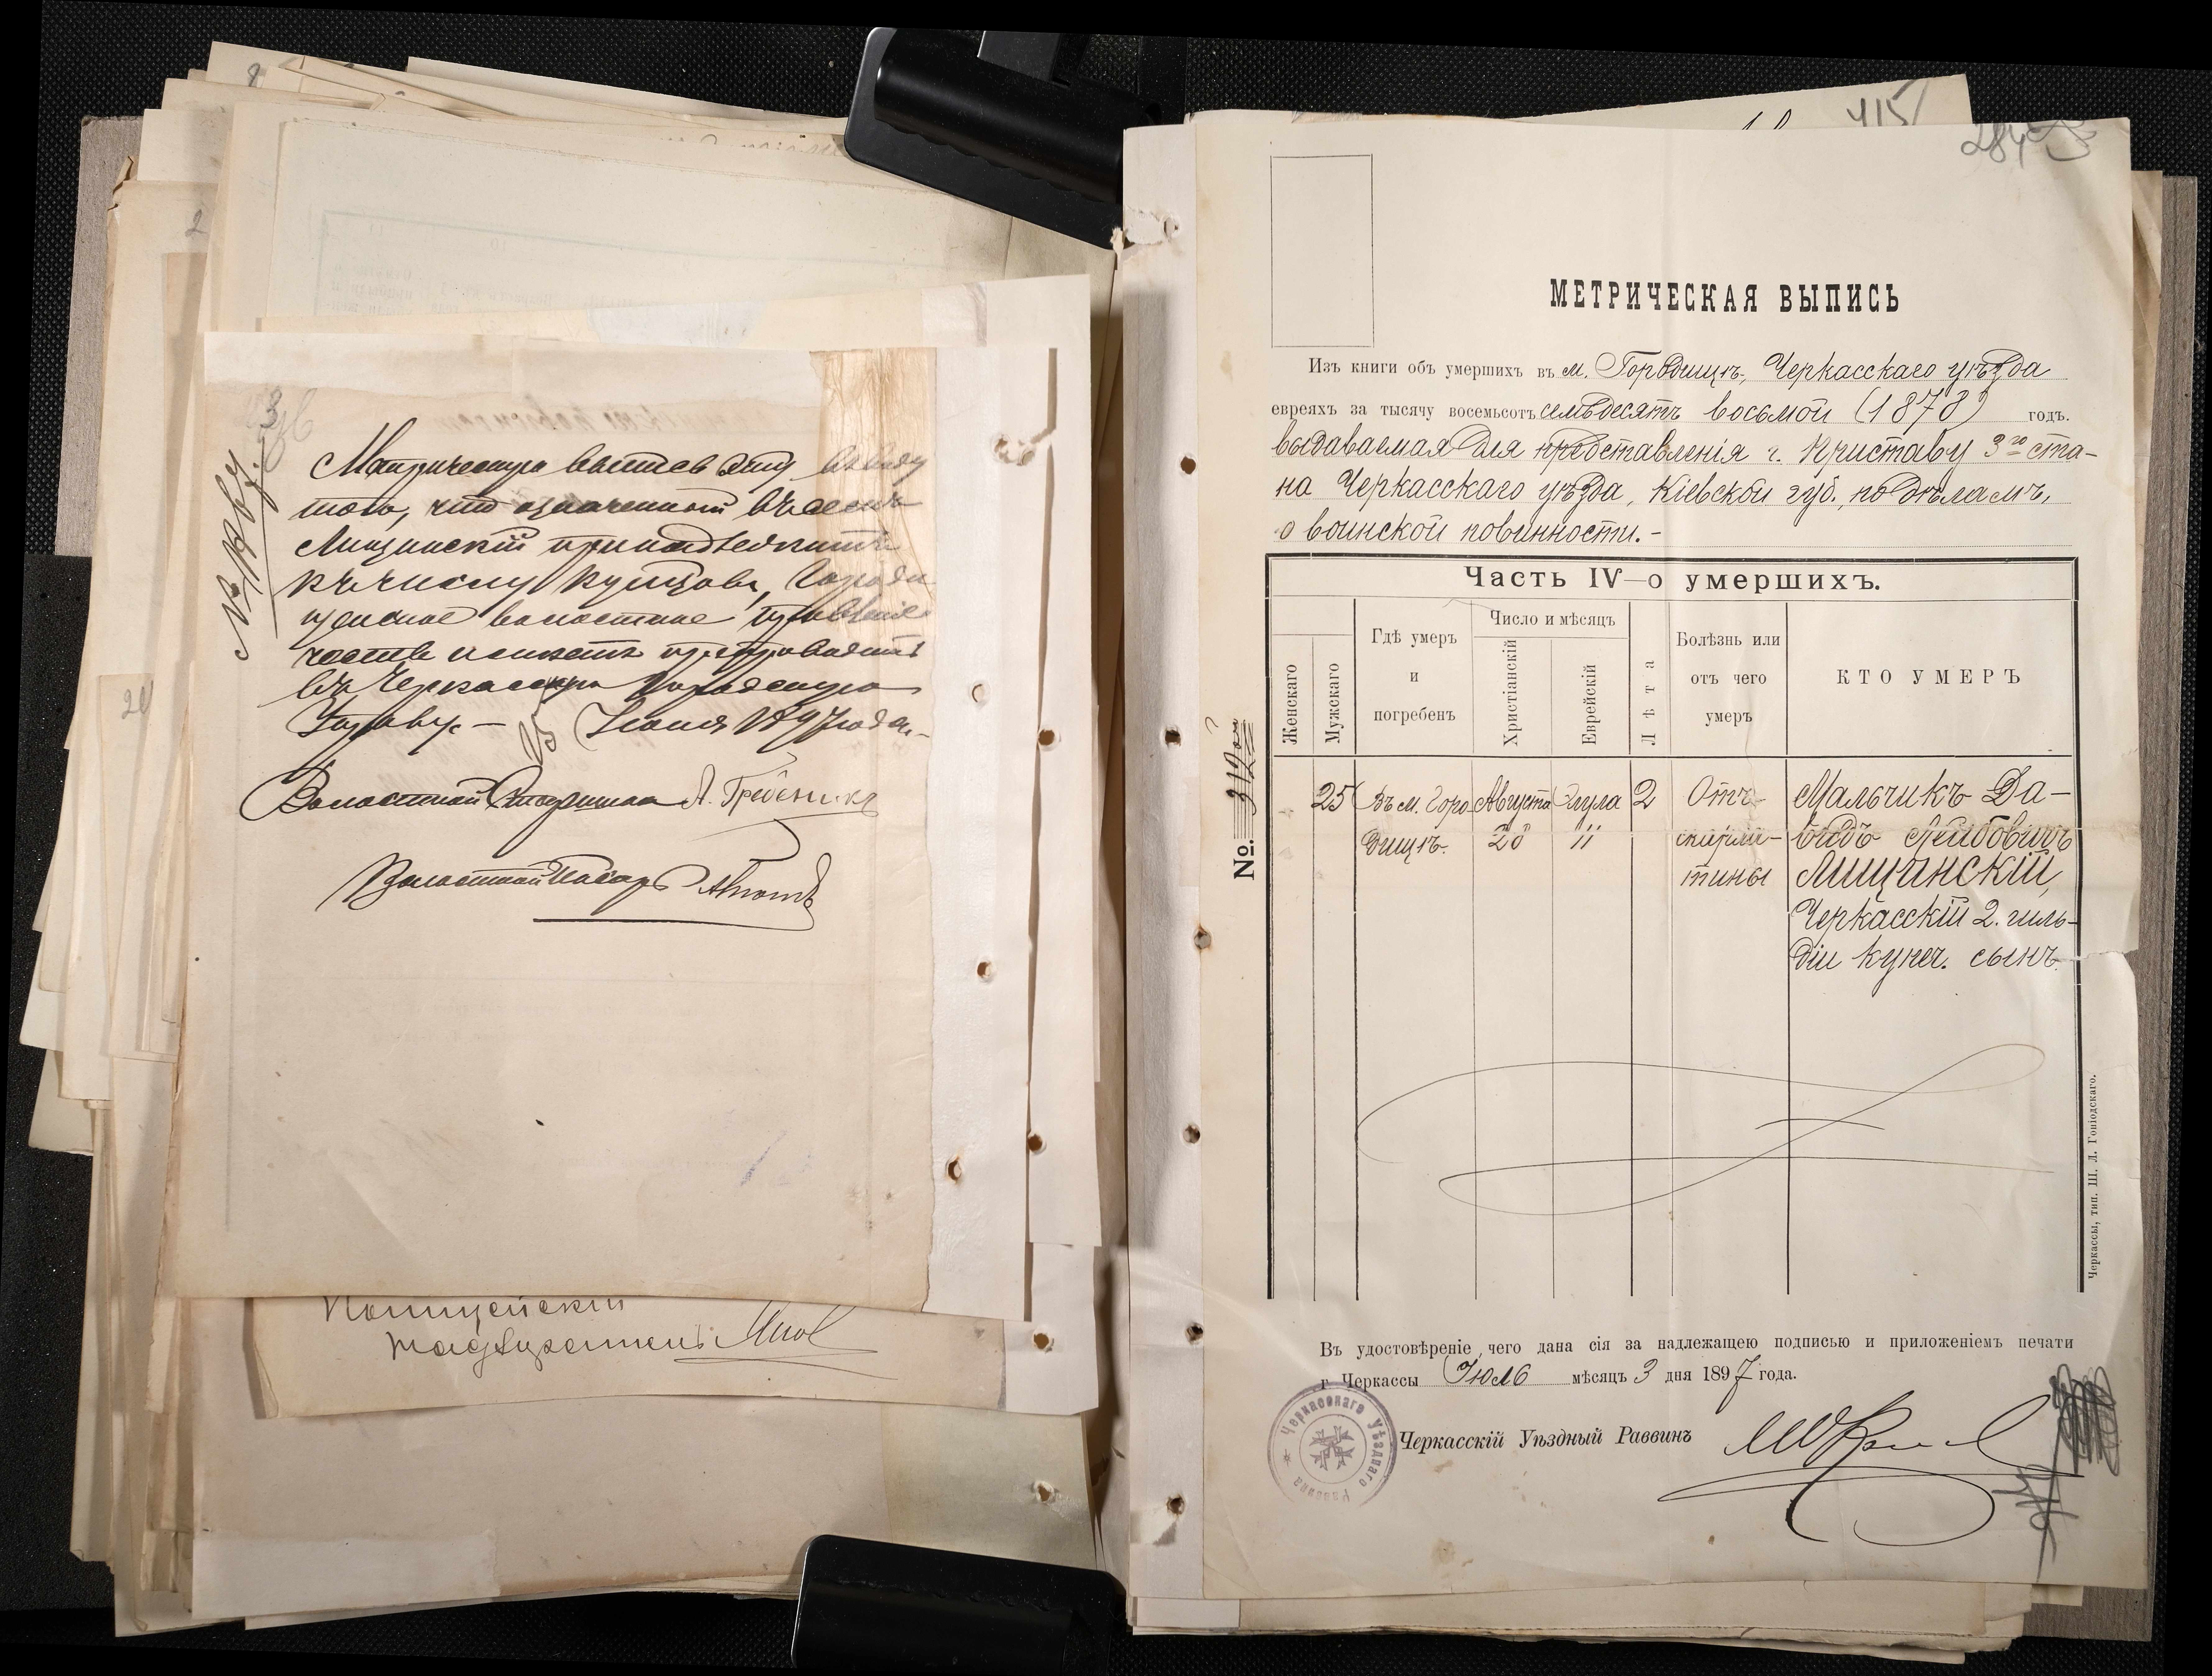 Метрическую выпись эту въ виду
того, что означенный въ ней
Лищинскій принадлежитъ
къ числу купцовъ, Городи
щенское волостное правленіе
честь имѣетъ препроводить
въ Черкасскую Городскую
Управу. – 25 Іюня 1897 года. –
Волостной Старшина А. Гребеникъ
Волостной Писарь
Полицейскій
надзиратель
415
284
МЕТРИЧЕСКАЯ ВЫПИСЬ
Изъ книги объ умершихъ въ м. Городищѣ, Черкасскаго уѣзда
евреяхъ за тысячу восемьсотъ семьдесятъ восьмой (1878) годъ.
выдаваемая для представленія г. Приставу 3го ста-
на Черкасскаго уѣзда, Кіевской губ., по дѣламъ,
о воинской повинности. –
Часть IV–о умершихъ.
Женскаго
Мужскаго
Гдѣ умеръ
и
погребенъ
Число и мѣсяцъ
Христіанскій
Еврейскій
Лѣта
Болѣзнь или
отъ чего
умеръ
КТО УМЕРЪ
No. 312
25 Въ м. Горо Августа Элула 2 Отъ Мальчикъ Да-
дищѣ. 28 11 скарла- видъ Лейбовичъ
тины Лищинскій,
Черкасскій 2. гиль-
діи купеч. сынъ.
Черкассы, тип. Ш. Л. Гоніодскаго.
Въ удостовѣреніе чего дана сія за надлежащею подписью и приложеніемъ печати
г. Черкассы Іюль мѣсяцъ 3 дня 1897 года.
Черкасскій Уѣздный Раввинъ
Черкасскаго Уѣзднаго Раввина